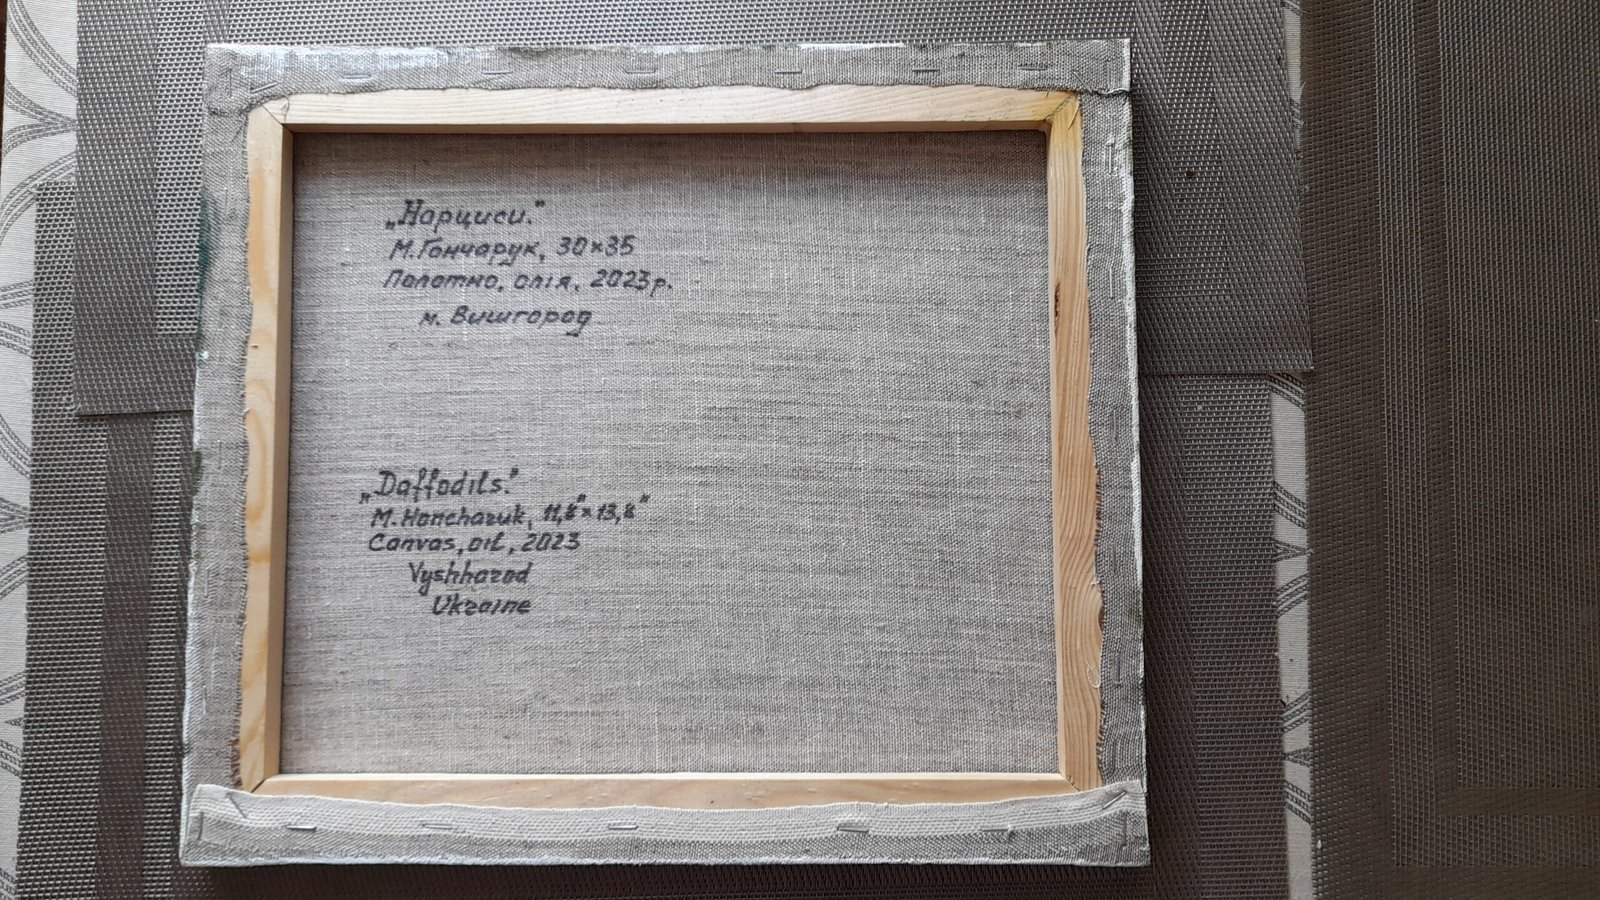 „Нарциси."
М. Гончарук, 30×35
Полотно, олія, 2023р.
м. Вишгород
„Daffodils."
M. Honcharuk, 11,8"×13,8"
Canvas, oil, 2023
Vyshharod
Ukraine